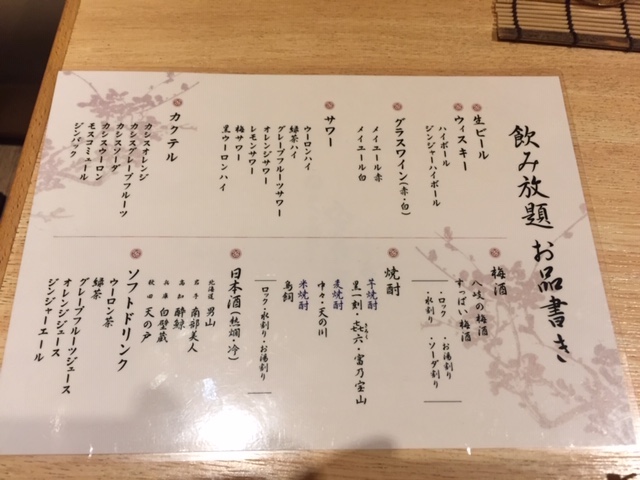 飲み放題 お品書き
生ビール
ウィスキー
ハイボール
ジンジャーハイボール
グラスワイン(赤・白)
メイエール赤
メイエール白
サワー
ウーロンハイ
緑茶ハイ
グレープフルーツサワー
オレンジサワー
レモンサワー
梅サワー
黒ウーロンハイ
カクテル
カシスオレンジ
カシスグレープフルーツ
カシスソーダ
カシスウーロン
モスコミュール
ジンバック
梅酒
八岐の梅酒
すっぱい梅酒
・ロック ・お湯割り
・水割り ・ソーダ割り
焼酎
芋焼酎
黒一刻・㐂六・富乃宝山
麦焼酎
中々・天の川
米焼酎
鳥飼
ロック・水割り・お湯割り
日本酒(熱燗・冷)
北海道 男山
岩手 南部美人
高知 酔鯨
兵庫 白壁蔵
秋田 天の戸
ソフトドリンク
ウーロン茶
緑茶
グレープフルーツジュース
オレンジジュース
ジンジャーエール